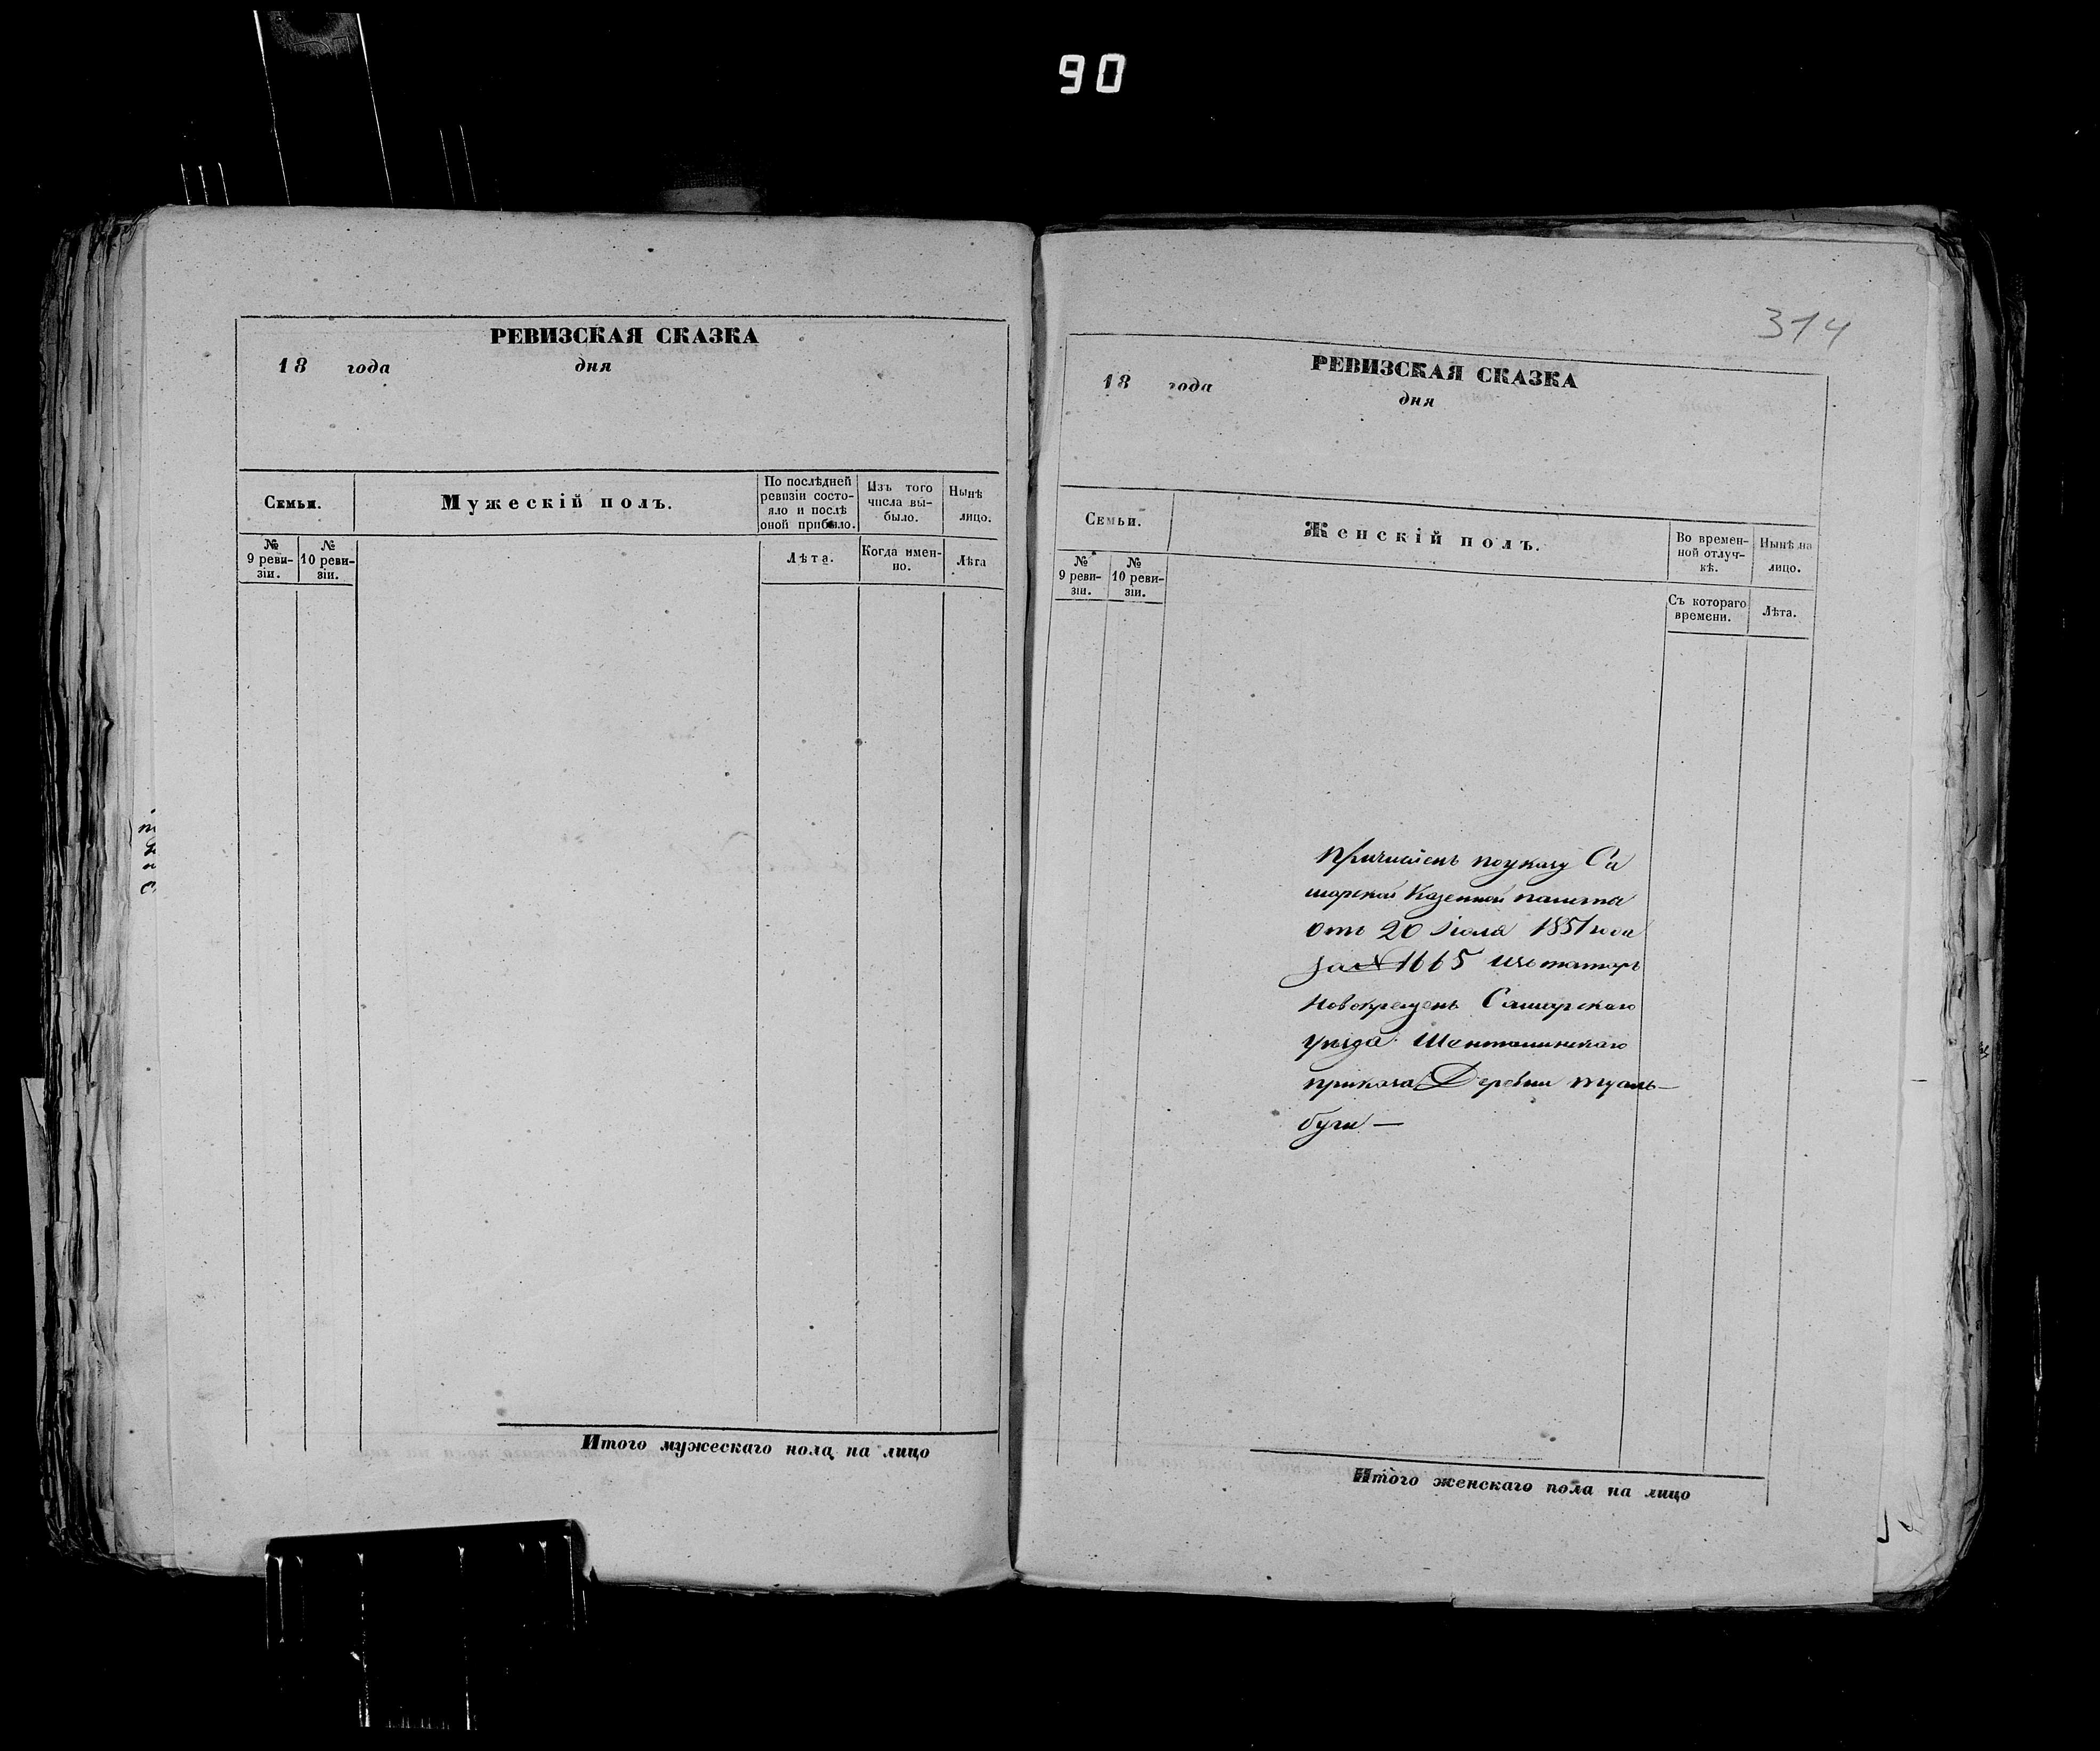 90
РЕВИЗСКАЯ СКАЗКА
18 года дня
Семьи.
Мужескій полъ.
По послѣдней
ревизіи состо-
яло и послѣ
оной прибыло.
Изъ того
числа вы-
было.
Нынѣ
лицо.
№
9 реви-
зіи.
№
10 реви-
зіи.
Лѣта.
Когда имен-
но.
Лѣта
Итого мужескаго пола на лицо
314
РЕВИЗСКАЯ СКАЗКА
18 года дня
Семьи.
Женскій полъ.
Во времен-
ной отлуч-
кѣ.
Нынѣ на
лицо.
№
9 реви-
зіи.
№
10 реви-
зіи.
Съ котораго
времени.
Лѣта.
Причисленъ по указу Са
марской Казенной палаты
отъ 20 Іюля 1851 года
за № 1665 изъ татаръ
Новокрещенъ Самарскаго
уѣзда Шенталинскаго
приказа Деревни Туаль-
буги —
Итого женскаго пола на лицо